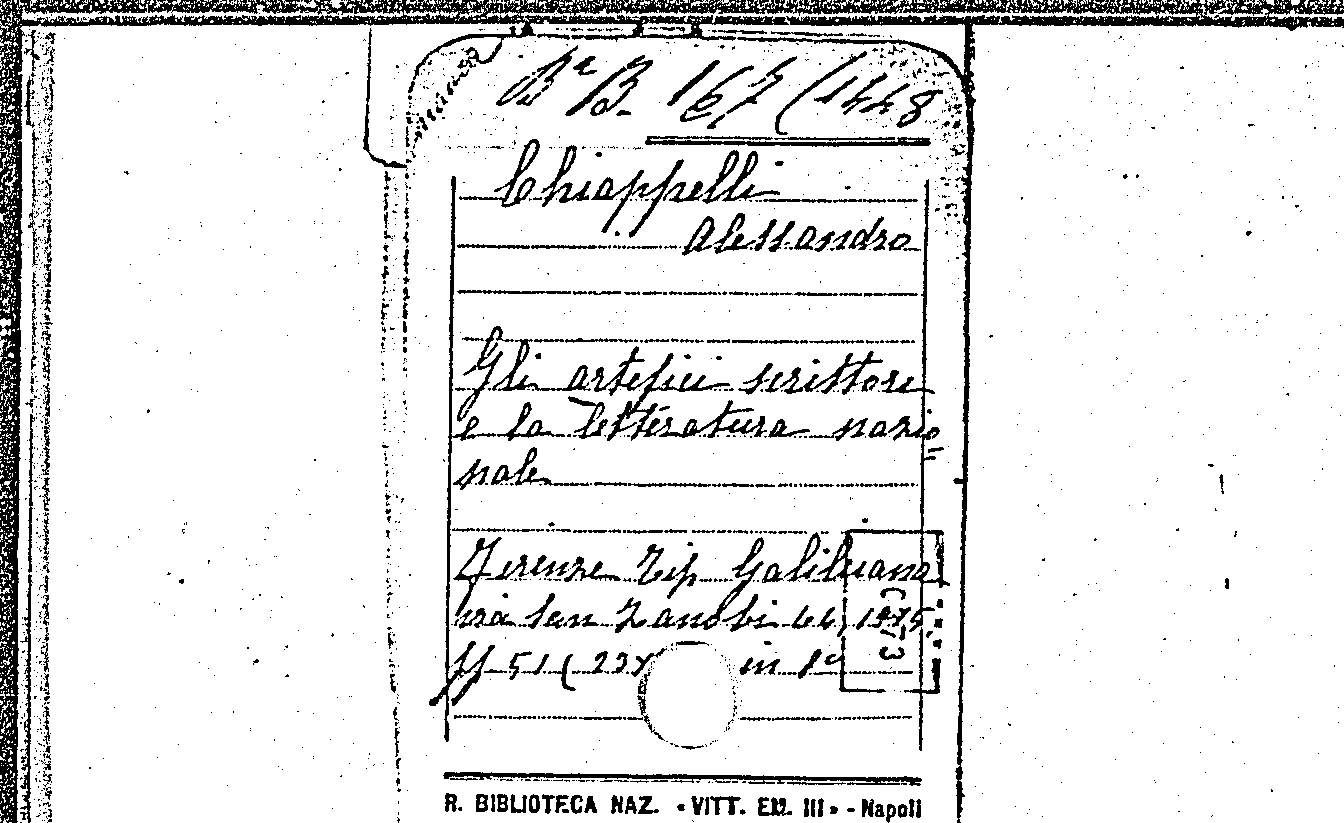 Bª B. 167 (1448
Chiappelli
Alessandro
Gli artefici scrittori
e la letteratura nazio
nale
Firenze Tip Galileiana
via San Zanobi
pp 51 (23x in 8º
C 73
R. BIBLIOTECA NAZ. «VITT. EM. III» - Napoli